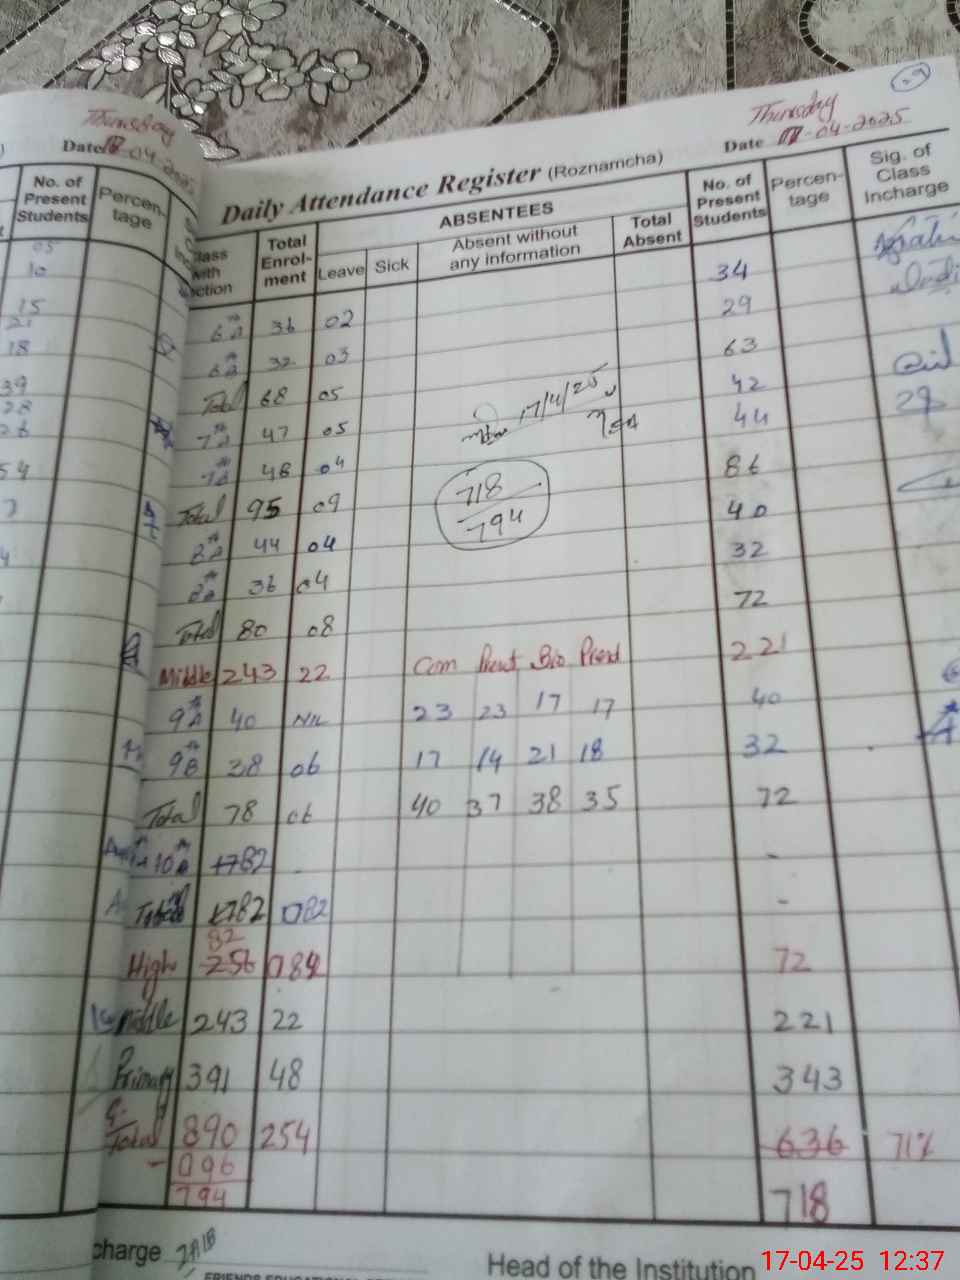 29
Thursday
Thursday
Date 17-04-2025
Date 17-04-2025
Daily Attendance Register (Roznamcha)
No. of Present Students
Percentage
Class with Section
Total Enrolment
ABSENTEES
Leave
Sick
Absent without any information
Total Absent
No. of Present Students
Percentage
Sig. of Class Incharge
05
10
15
21
18
39
28
26
54
6th A 36 02 34
6th B 32 03 29
Total 68 05 63
7th A 47 05 42
7th B 48 04 44
17/4/25
Total 95 09 86
718
794
8th A 44 04 40
8th B 36 04 32
Total 80 08 72
Middle 243 22 221
Com Prent Bio Prent
9th A 40 NIL 23 23 17 17 40
9th B 38 06 17 14 21 18 32
Total 78 06 40 37 38 35 72
10th 1782 -
Total 1782 082 -
82
High 256 184 72
Middle 243 22 221
Primary 391 48 343
G. Total 890 254 636 71%
- 096
794 718
charge
Head of the Institution
17-04-25 12:37